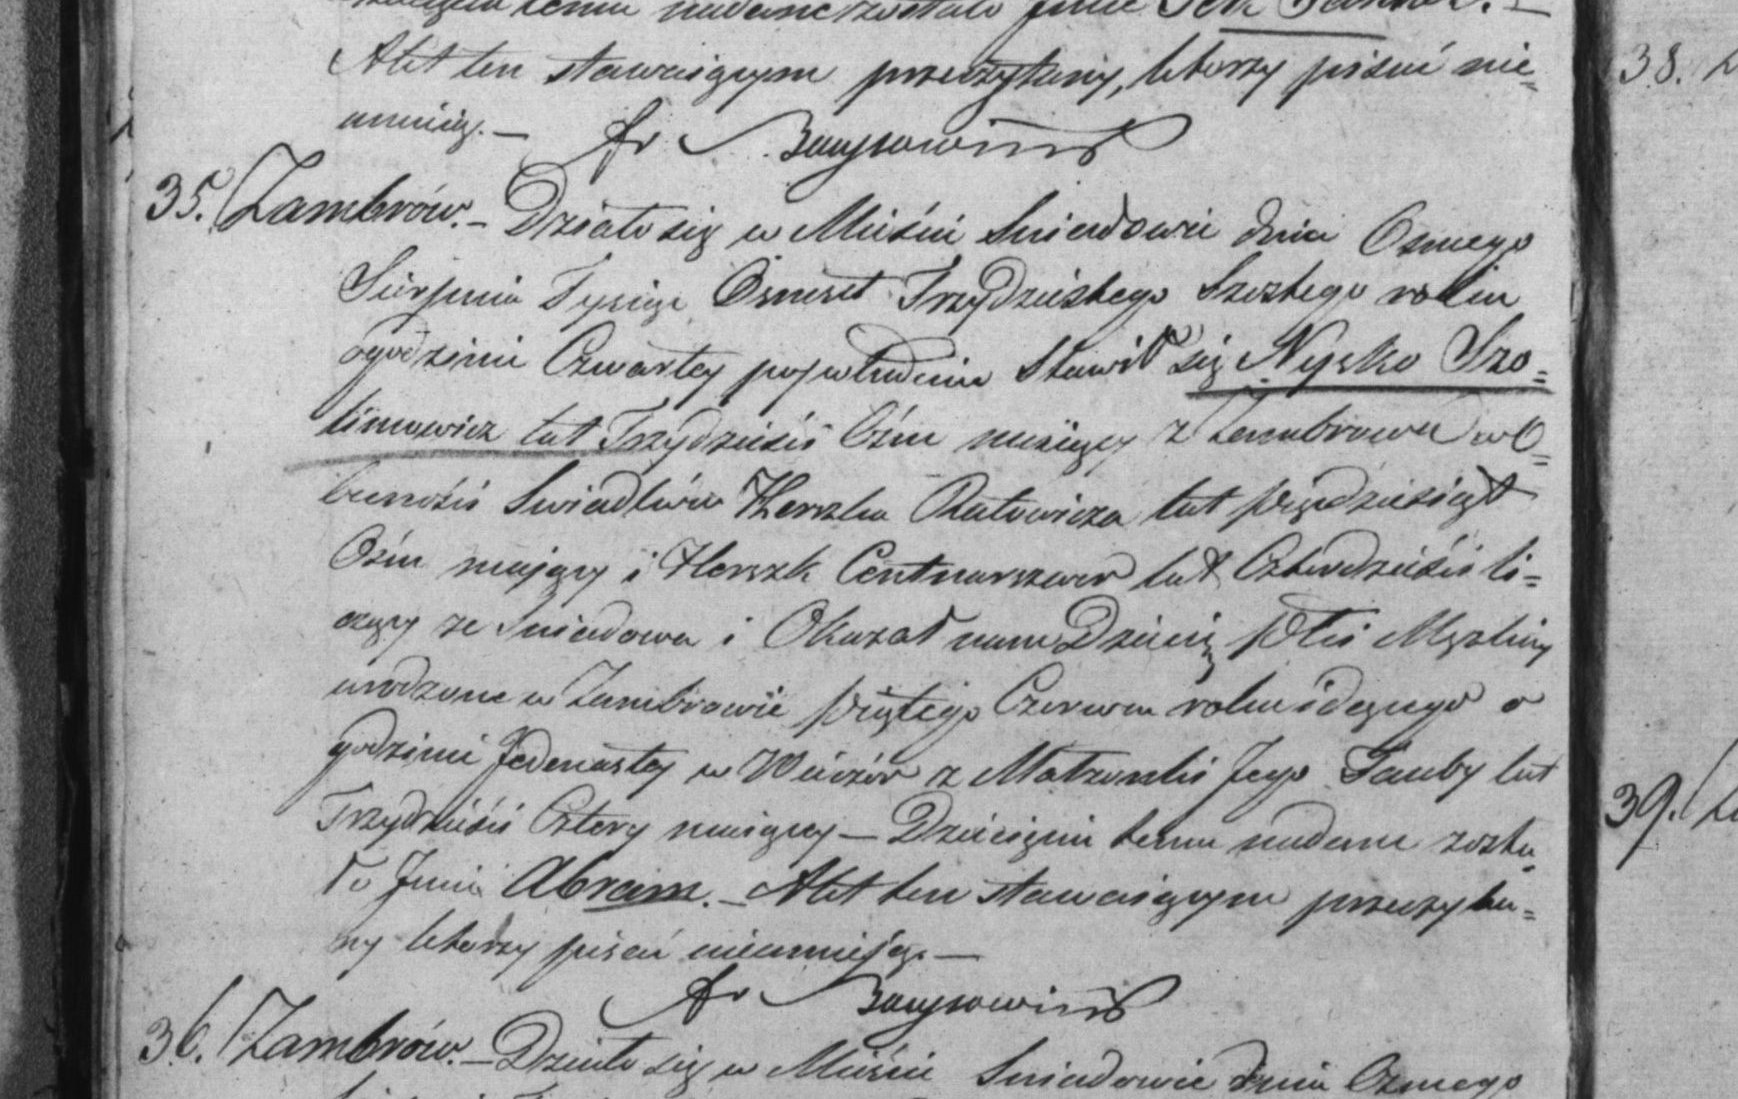 temu nadane zostało Jmie
Akt ten stawaiącym przeczytany, którzy pisać nie=
umieią. —
35. Zambrów. – Działo się w Mieście Sniadowie dnia Osmego
Sierpnia Tysiąc Osmset Trzydziestego Szostego roku
ogodzinie Czwartey popołudniu Stawił się Nysko Szo=
limowicz lat Trzydzieści Ośm maiący z Zambrowa w O=
becności Swiadków Herszka Ratowicza lat pięćdziesiąt
Ośm maiący i Herszk Centnarszwer lat Czterdzieści li=
czący ze Sniadowa i Okazał nam Dziecię płci Męzkiey
urodzone w Zambrowie piątego Czerwca roku idącego o
godzinie Jedenastey w Wieczór z Małzonki Jego Tauby lat
Trzydzieści Cztery maiącey — Dziecięciu temu nadane zosta=
ło Jmie Abram. – Akt ten stawaiącym przeczyta=
ny którzy pisać nieumieią. —
36. Zambrów. – Działo się w Mieście Sniadowie dnia Osmego
38.
39.